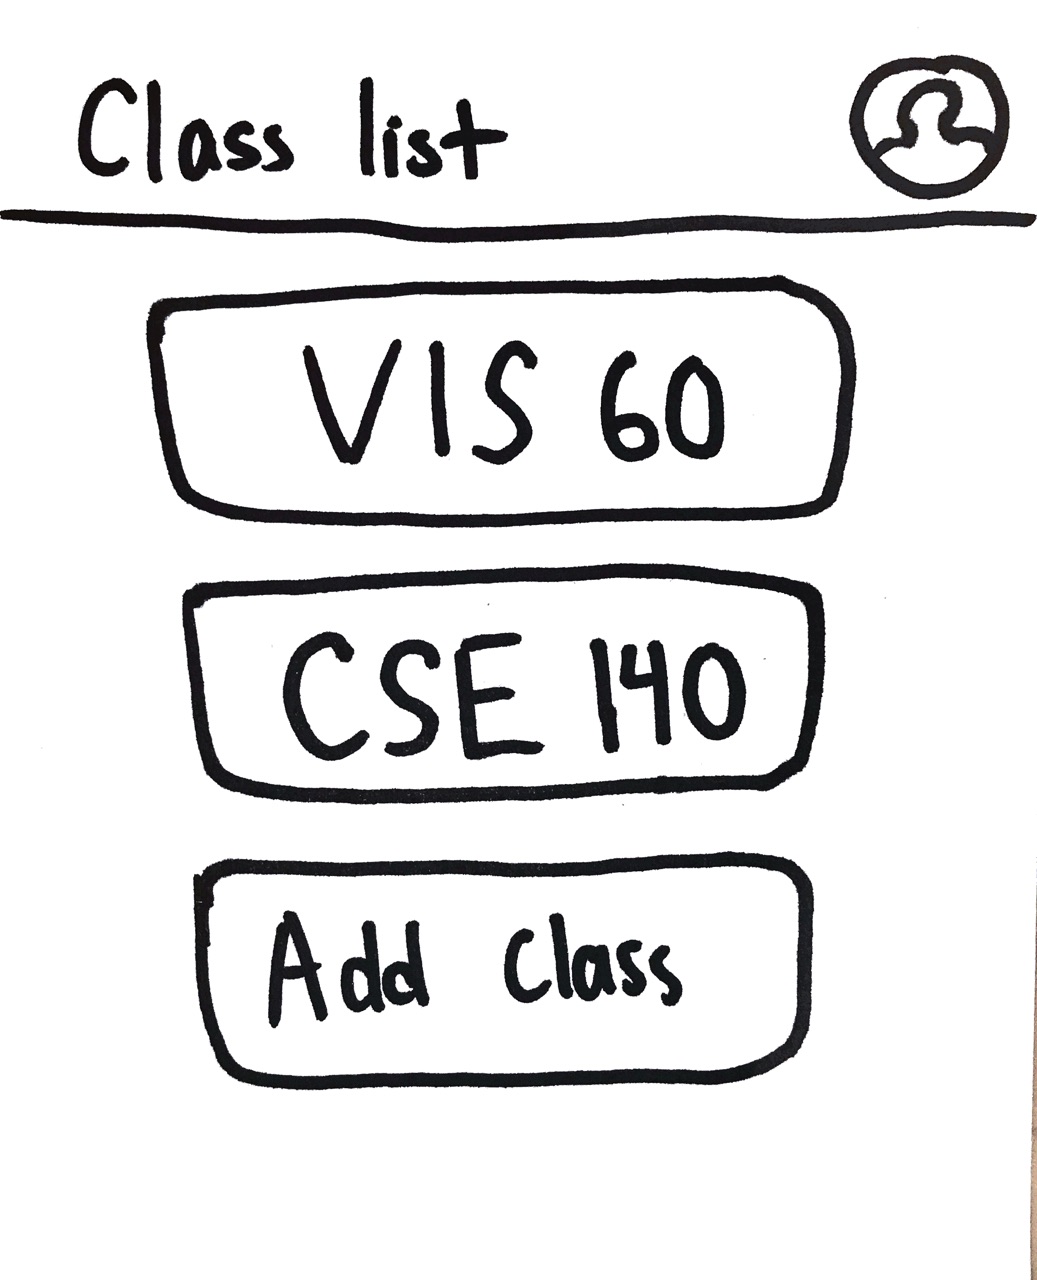 Class list
VIS 60
CSE 140
Add class